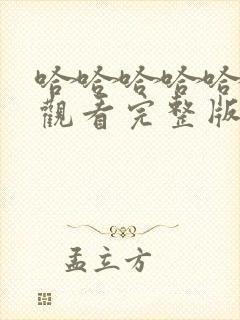 哈哈哈哈哈
觀看完整版
孟立方